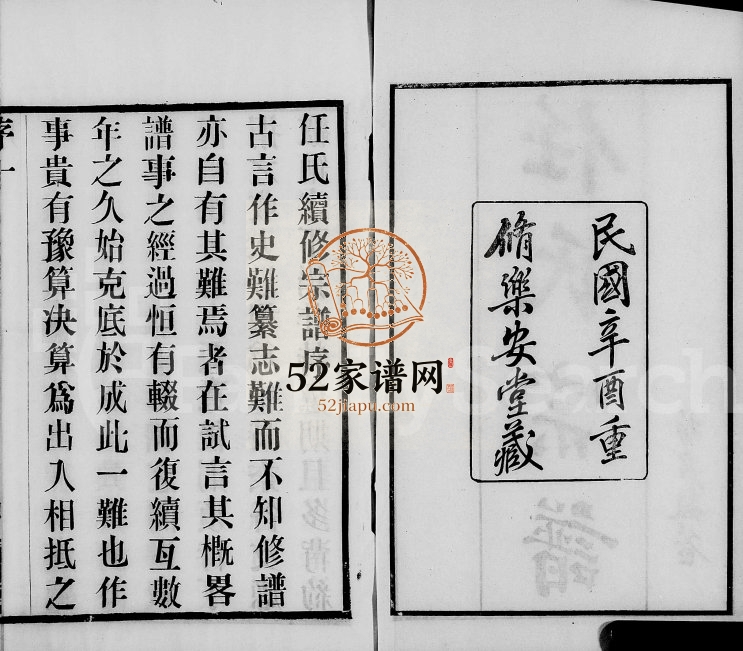 民國辛酉重
脩樂安堂藏
任氏續修宗譜序
古言作史難纂志難而不知修譜
亦自有其難焉者在試言其概畧
譜事之經過恒有輟而復續亙數
年之久始克底於成此一難也作
事貴有豫算決算爲出入相抵之
序一
52家谱网
52jiapu.com